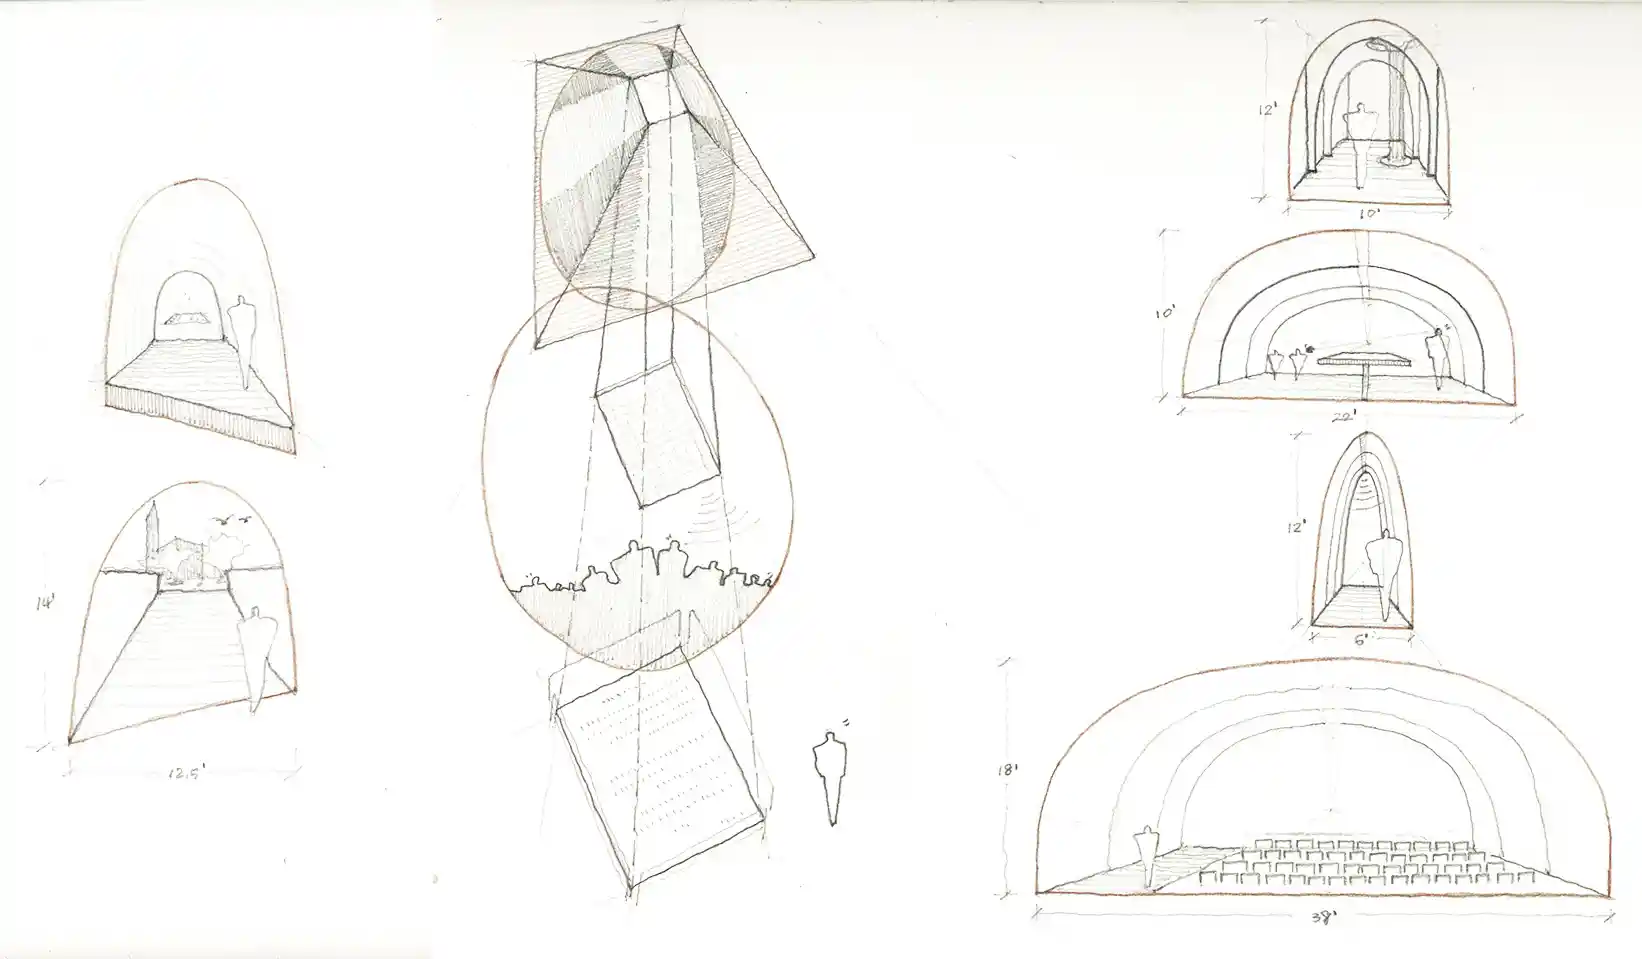 14'
12.5'
12'
10'
10'
22'
12'
6'
18'
38'